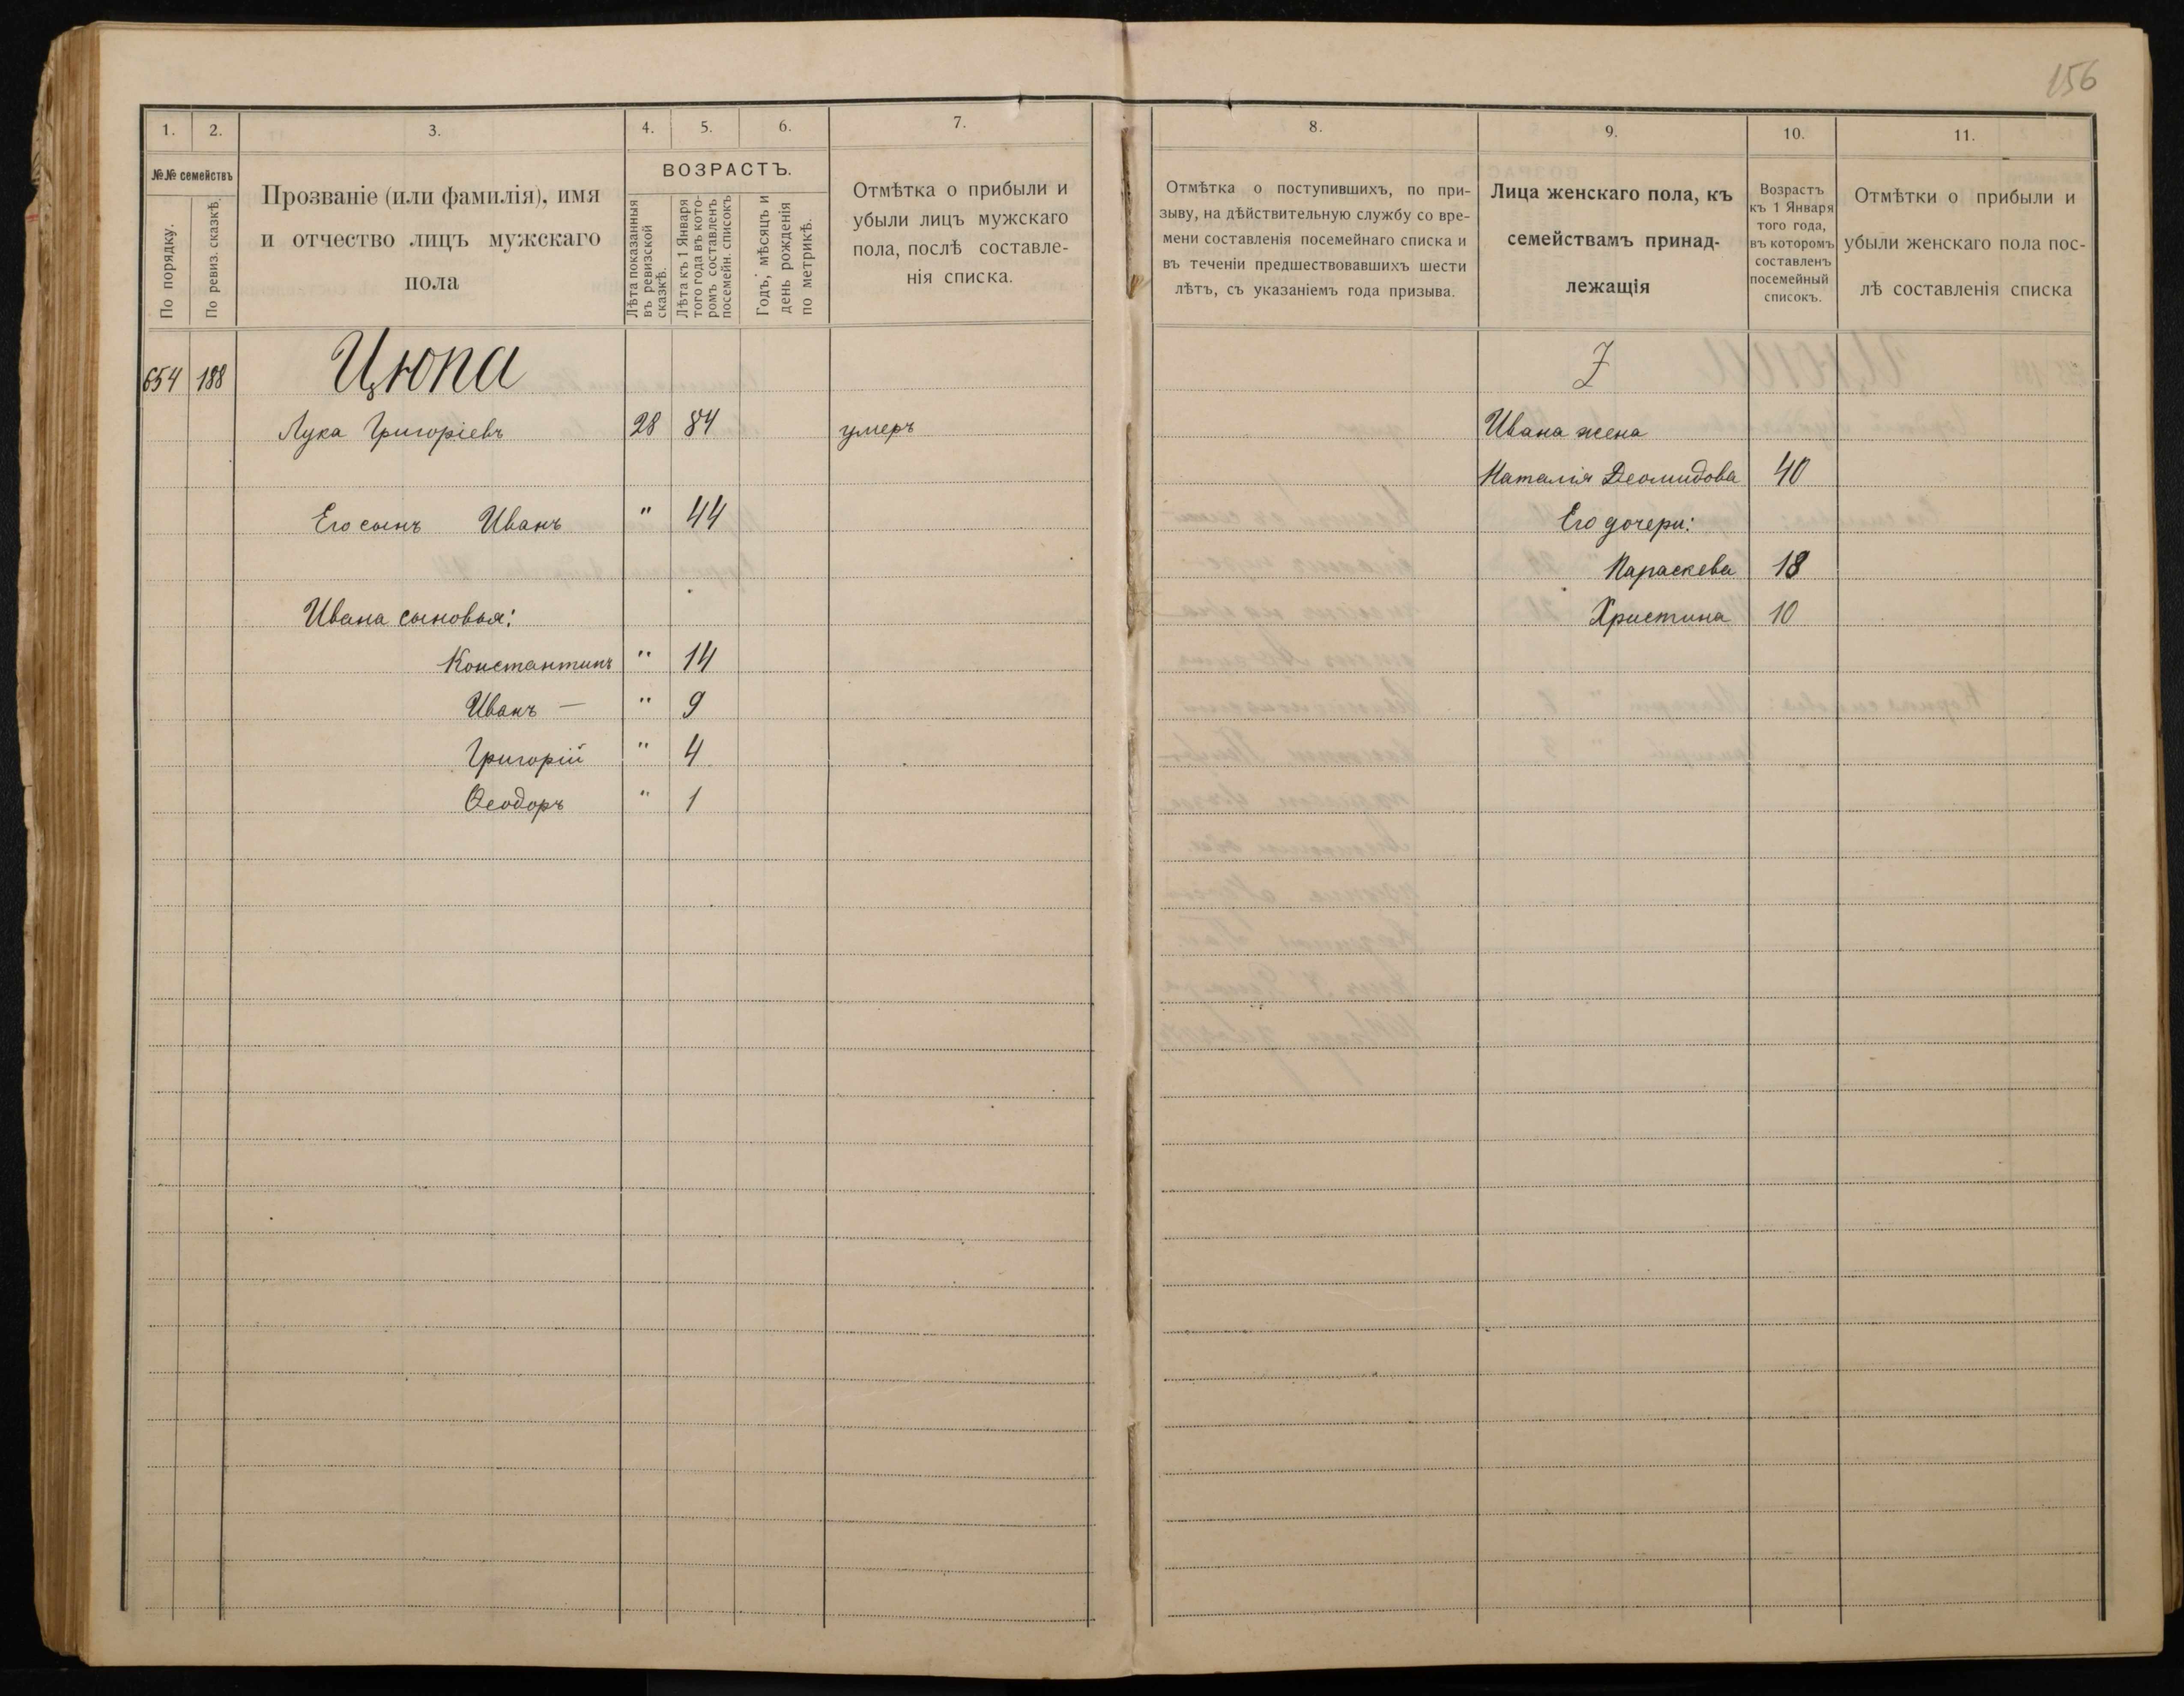 156
1. 2. 3. 4. 5. 6. 7.
№№ семействъ
По порядку.
По ревиз. сказкѣ.
Прозваніе (или фамилія), имя
и отчество лицъ мужскаго
пола
ВОЗРАСТЪ.
Лѣта показанныя
въ ревизской
сказкѣ.
Лѣта къ 1 Января
того года въ кото-
ромъ составленъ
посемейн. списокъ
Годъ, мѣсяцъ и
день рожденія
по метрикѣ.
Отмѣтка о прибыли и
убыли лицъ мужскаго
пола, послѣ составле-
нія списка.
654 188 Цюпа
Лука Григоріевъ 28 84 умеръ
Его сынъ Иванъ " 44
Ивана сыновья:
Константинъ " 14
Иванъ — " 9
Григорій " 4
Ѳеодоръ " 1
8. 9. 10. 11.
Отмѣтка о поступившихъ, по при-
зыву, на дѣйствительную службу со вре-
мени составленія посемейнаго списка и
въ теченіи предшествовавшихъ шести
лѣтъ, съ указаніемъ года призыва.
Лица женскаго пола, къ
семействамъ принад-
лежащія
Возрастъ
къ 1 Января
того года,
въ которомъ
составленъ
посемейный
списокъ.
Отмѣтки о прибыли и
убыли женскаго пола пос-
лѣ составленія списка
Ивана жена
Наталія Деомидова 40
Его дочери:
Параскева 18
Христина 10